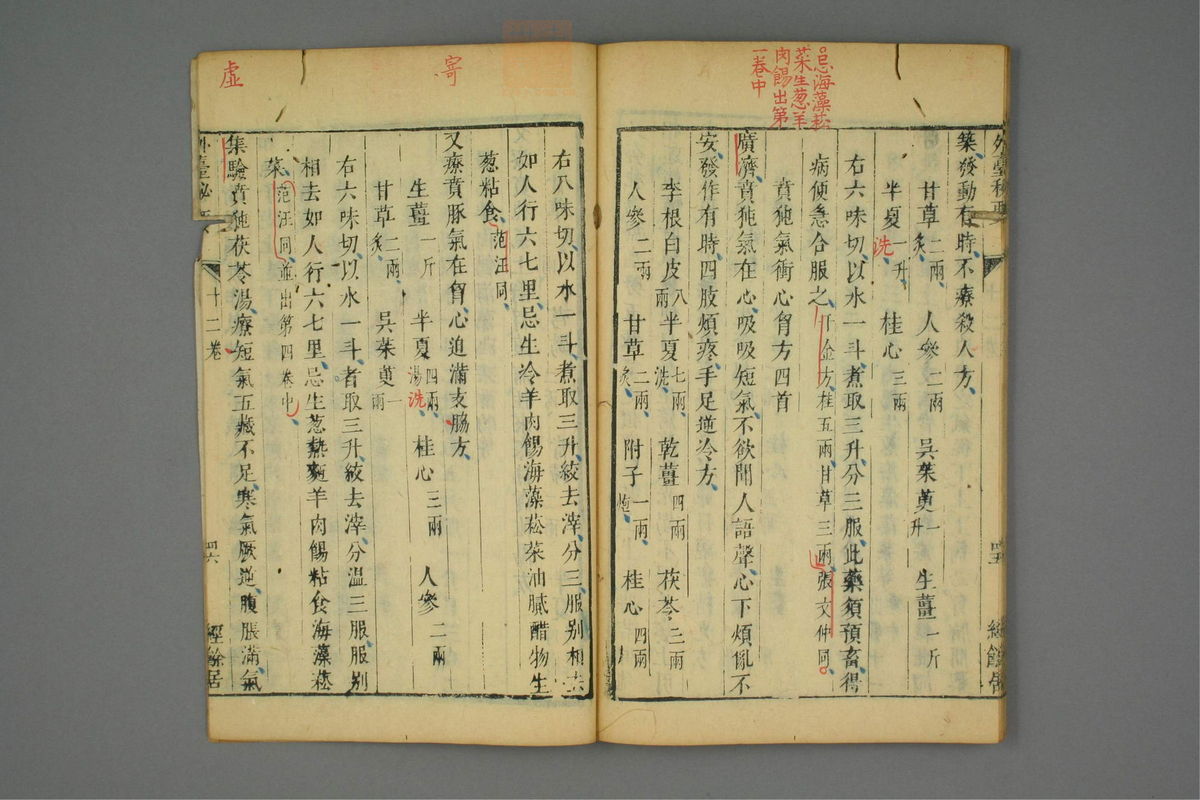 忌海藻菘
菜生葱羊
肉餳出第
一卷中
外臺秘要
四五
經餘居
築發動有時不療殺人方
甘草二兩炙 人參二兩 吳茱萸一升 生薑一斤
半夏一升洗 桂心三兩
右六味切以水一斗煮取三升分三服此藥須預畜得
病便急合服之千金方桂五兩甘草三兩張文仲同
賁㹠氣衝心胷方四首
廣濟賁㹠氣在心吸吸短氣不欲聞人語聲心下煩亂不
安發作有時四肢煩疼手足逆冷方
李根白皮八兩 半夏七兩洗 乾薑四兩 茯苓三兩
人參二兩 甘草二兩炙 附子一兩炮 桂心四兩
寄
虛
右八味切以水一斗煮取三升絞去滓分三服别相去
如人行六七里忌生冷羊肉餳海藻菘菜油膩醋物生
葱粘食范汪同
又療賁豚氣在胷心迫滿支脇方
生薑一斤 半夏四兩湯洗 桂心三兩 人參二兩
甘草二兩炙 吳茱萸一兩
右六味切以水一斗煮取三升絞去滓分溫三服服别
相去如人行六七里忌生葱熱麵羊肉餳粘食海藻菘
菜范汪同並出第四卷中
集驗賁㹠茯苓湯療短氣五藏不足寒氣厥逆腹脹滿氣
外臺秘要
十二卷
四六
經餘居